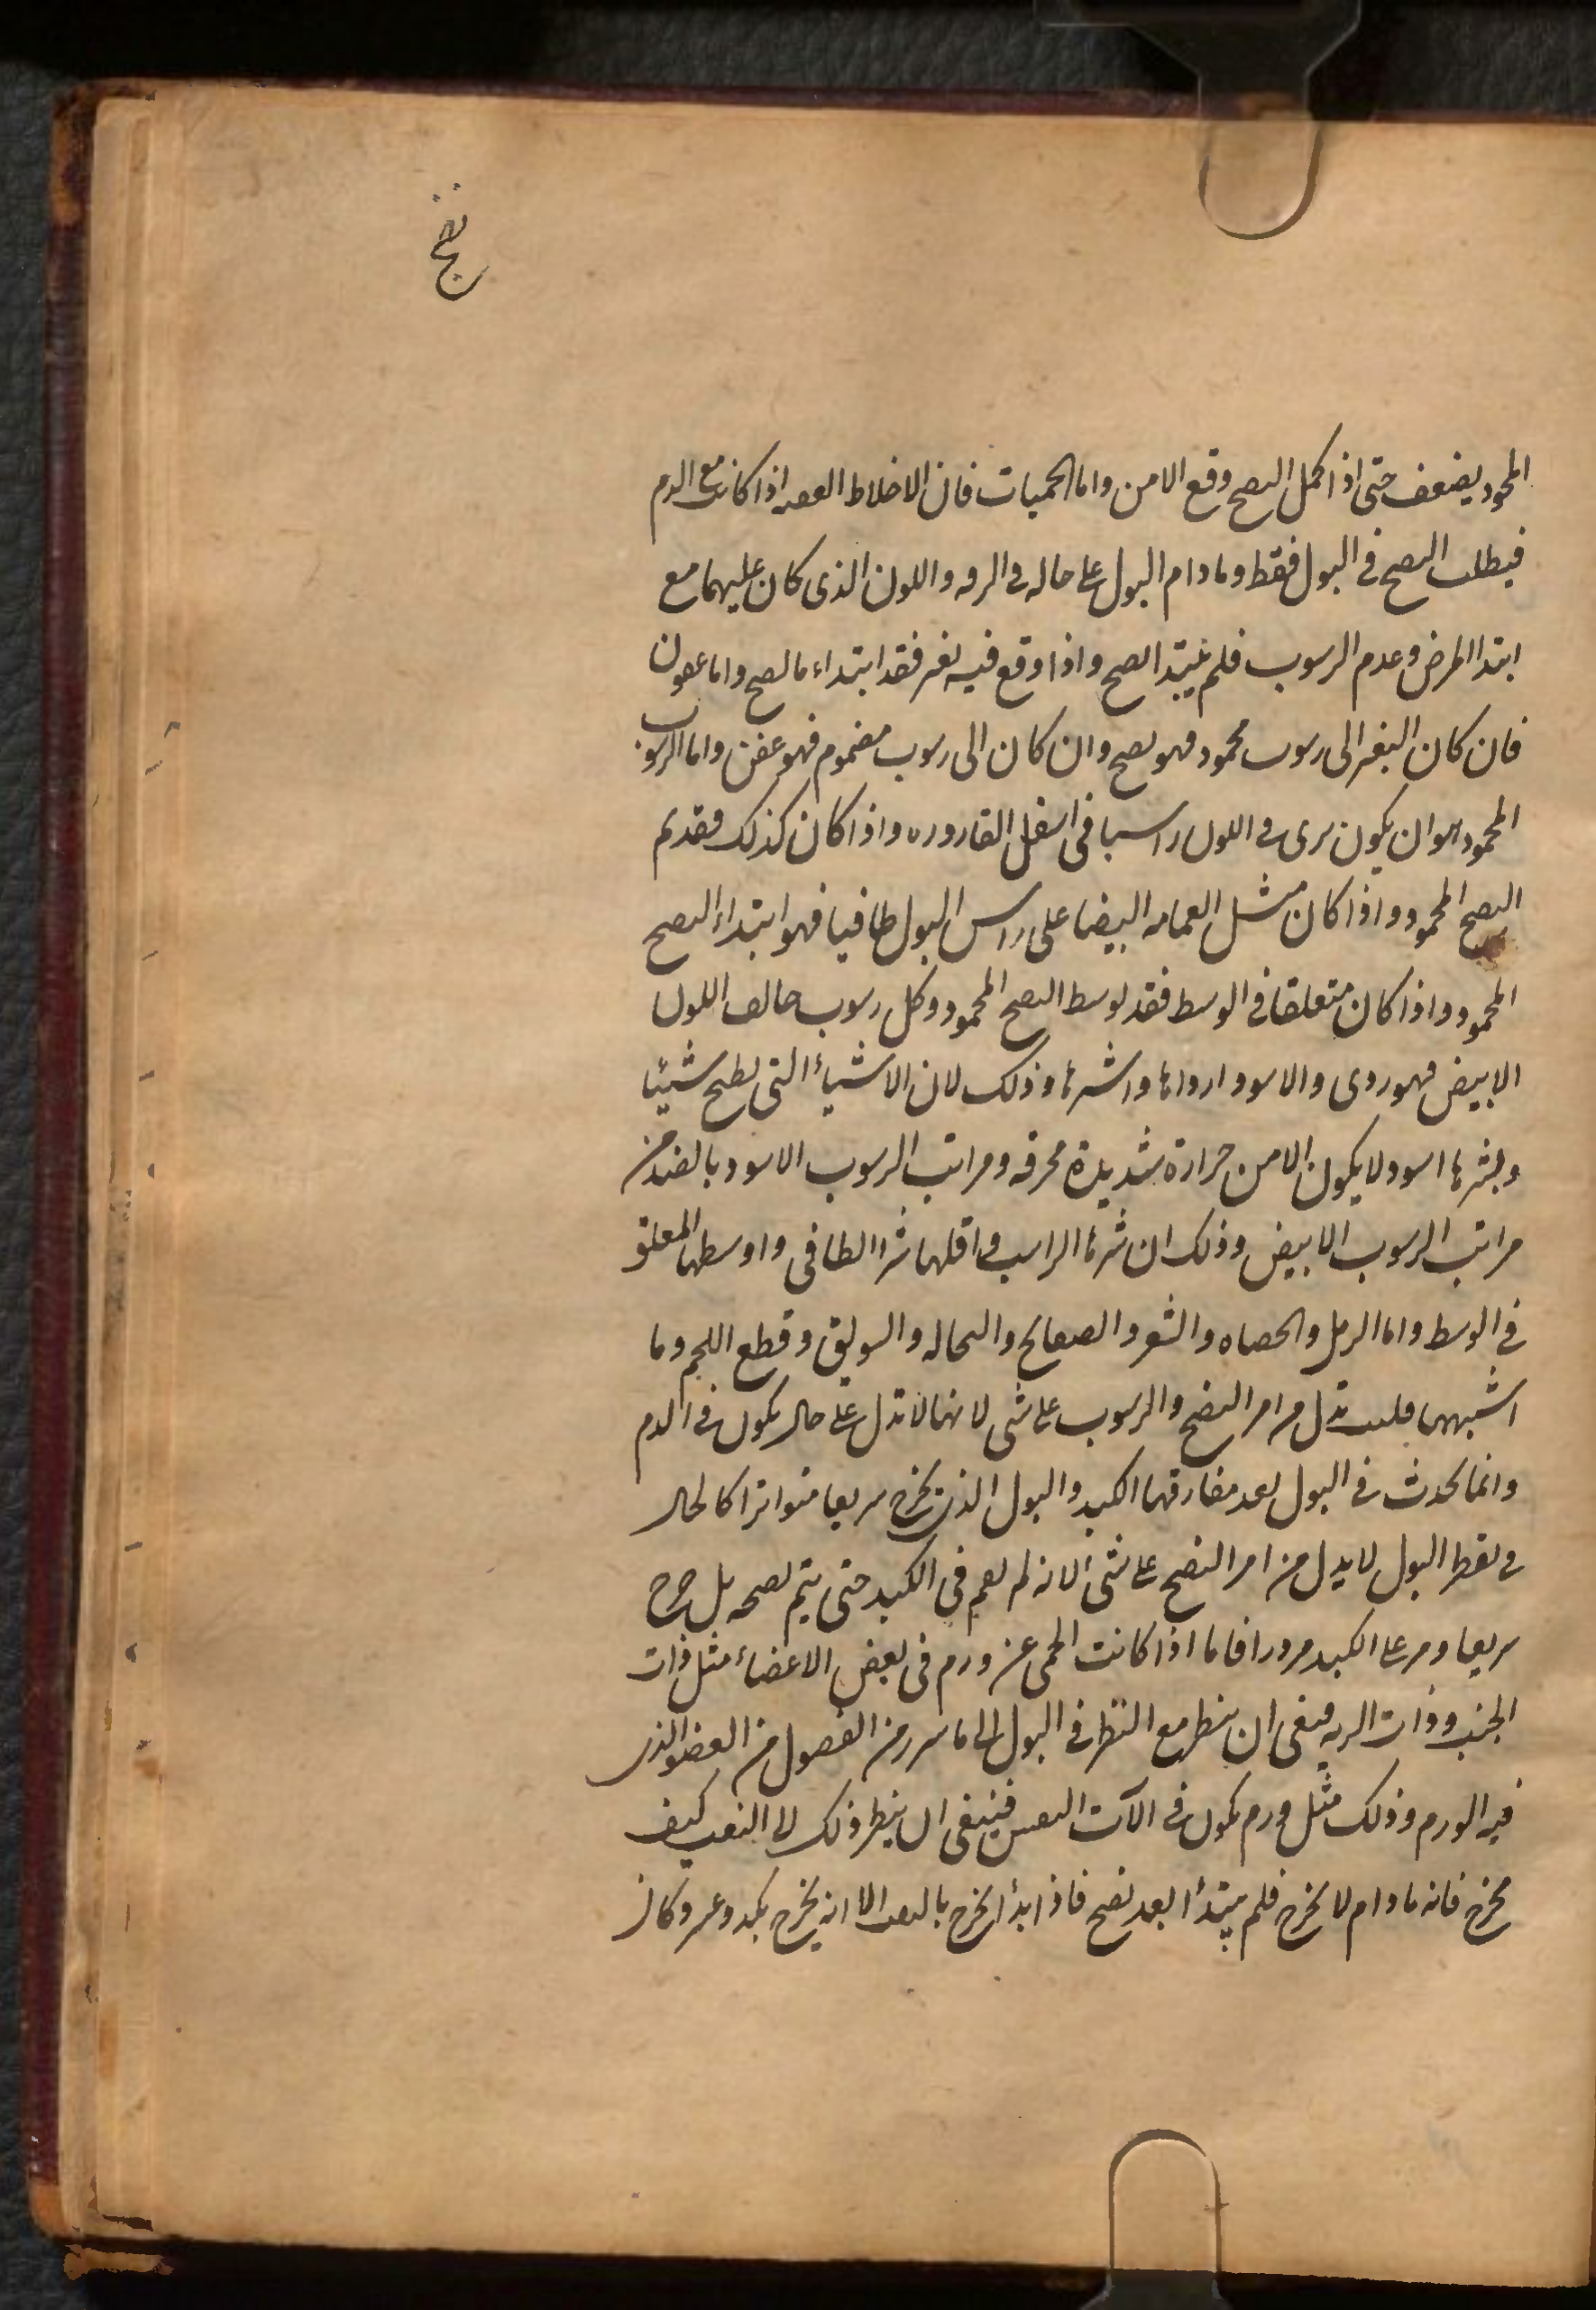 نضج
المحمود يضعف حتى اذا كمل النضج وقع الامن واما الحميات فان الاخلاط العفنه اذا كانت مع الدم
فيطلب النضج في البول فقط وما دام البول على حاله في الرقه واللون الذى كان عليهما مع
ابتدا المرض وعدم الرسوب فلم يبتدا النضج واذا وقع فيه تغير فقد ابتداء اما نضج واما عفون
فان كان التغير الى رسوب محمود فهو نضج وان كان الى رسوب مذموم فهو عفن واما الرسوب
المحمود هو ان يكون يرى في اللون راسبا في اسفل القاروره واذا كان كذلك فقد تم
النضج المحمود واذا كان مثل الغمامه البيضا على راس البول طافيا فهو ابتداء النضج
المحمود واذا كان متعلقا في الوسط فقد توسط النضج المحمود وكل رسوب خالف اللون
الابيض فهو ردى والاسود ارداها واشرها وذلك لان الاشياء التى تطبخ شيئا
اسود لا يكون الا من حرارة شديدة محرقه ومراتب الرسوب الاسود بالضد من
مراتب الرسوب الابيض وذلك ان شرها الراسب واقلها شرا الطافى واوسطها المعلق
في الوسط واما الرمل والحصاه والشعر والصفايح والنخاله والسويق وقطع اللحم وما
اشبهها فليست تدل من امر النضج والرسوب على شى لانها لا تدل على حال يكون في الدم
وانما تحدث في البول بعد مفارقتها الكبد والبول الذى يخرج سريعا متواترا كالحال
في تقطر البول لا يدل من امر النضج على شى لانه لم يقم في الكبد حتى يتم نضجه بل خرج
سريعا ومر على الكبد مرورا فاما اذا كانت الحمى عن ورم فى بعض الاعضاء مثل ذات
الجنب وذات الريه فينبغى ان ينظر مع النظر في البول الى ما يبرز من الفضول من العضو الذى
فيه الورم وذلك مثل ورم يكون في الآت النفس فينبغى ان ينظر ذلك لا النفث كيف
يخرج فانه ما دام لا يخرج فلم يبتدأ بعد نضج فاذا ابدأ يخرج بالنفث الا انه يخرج بكد وعسر وكان